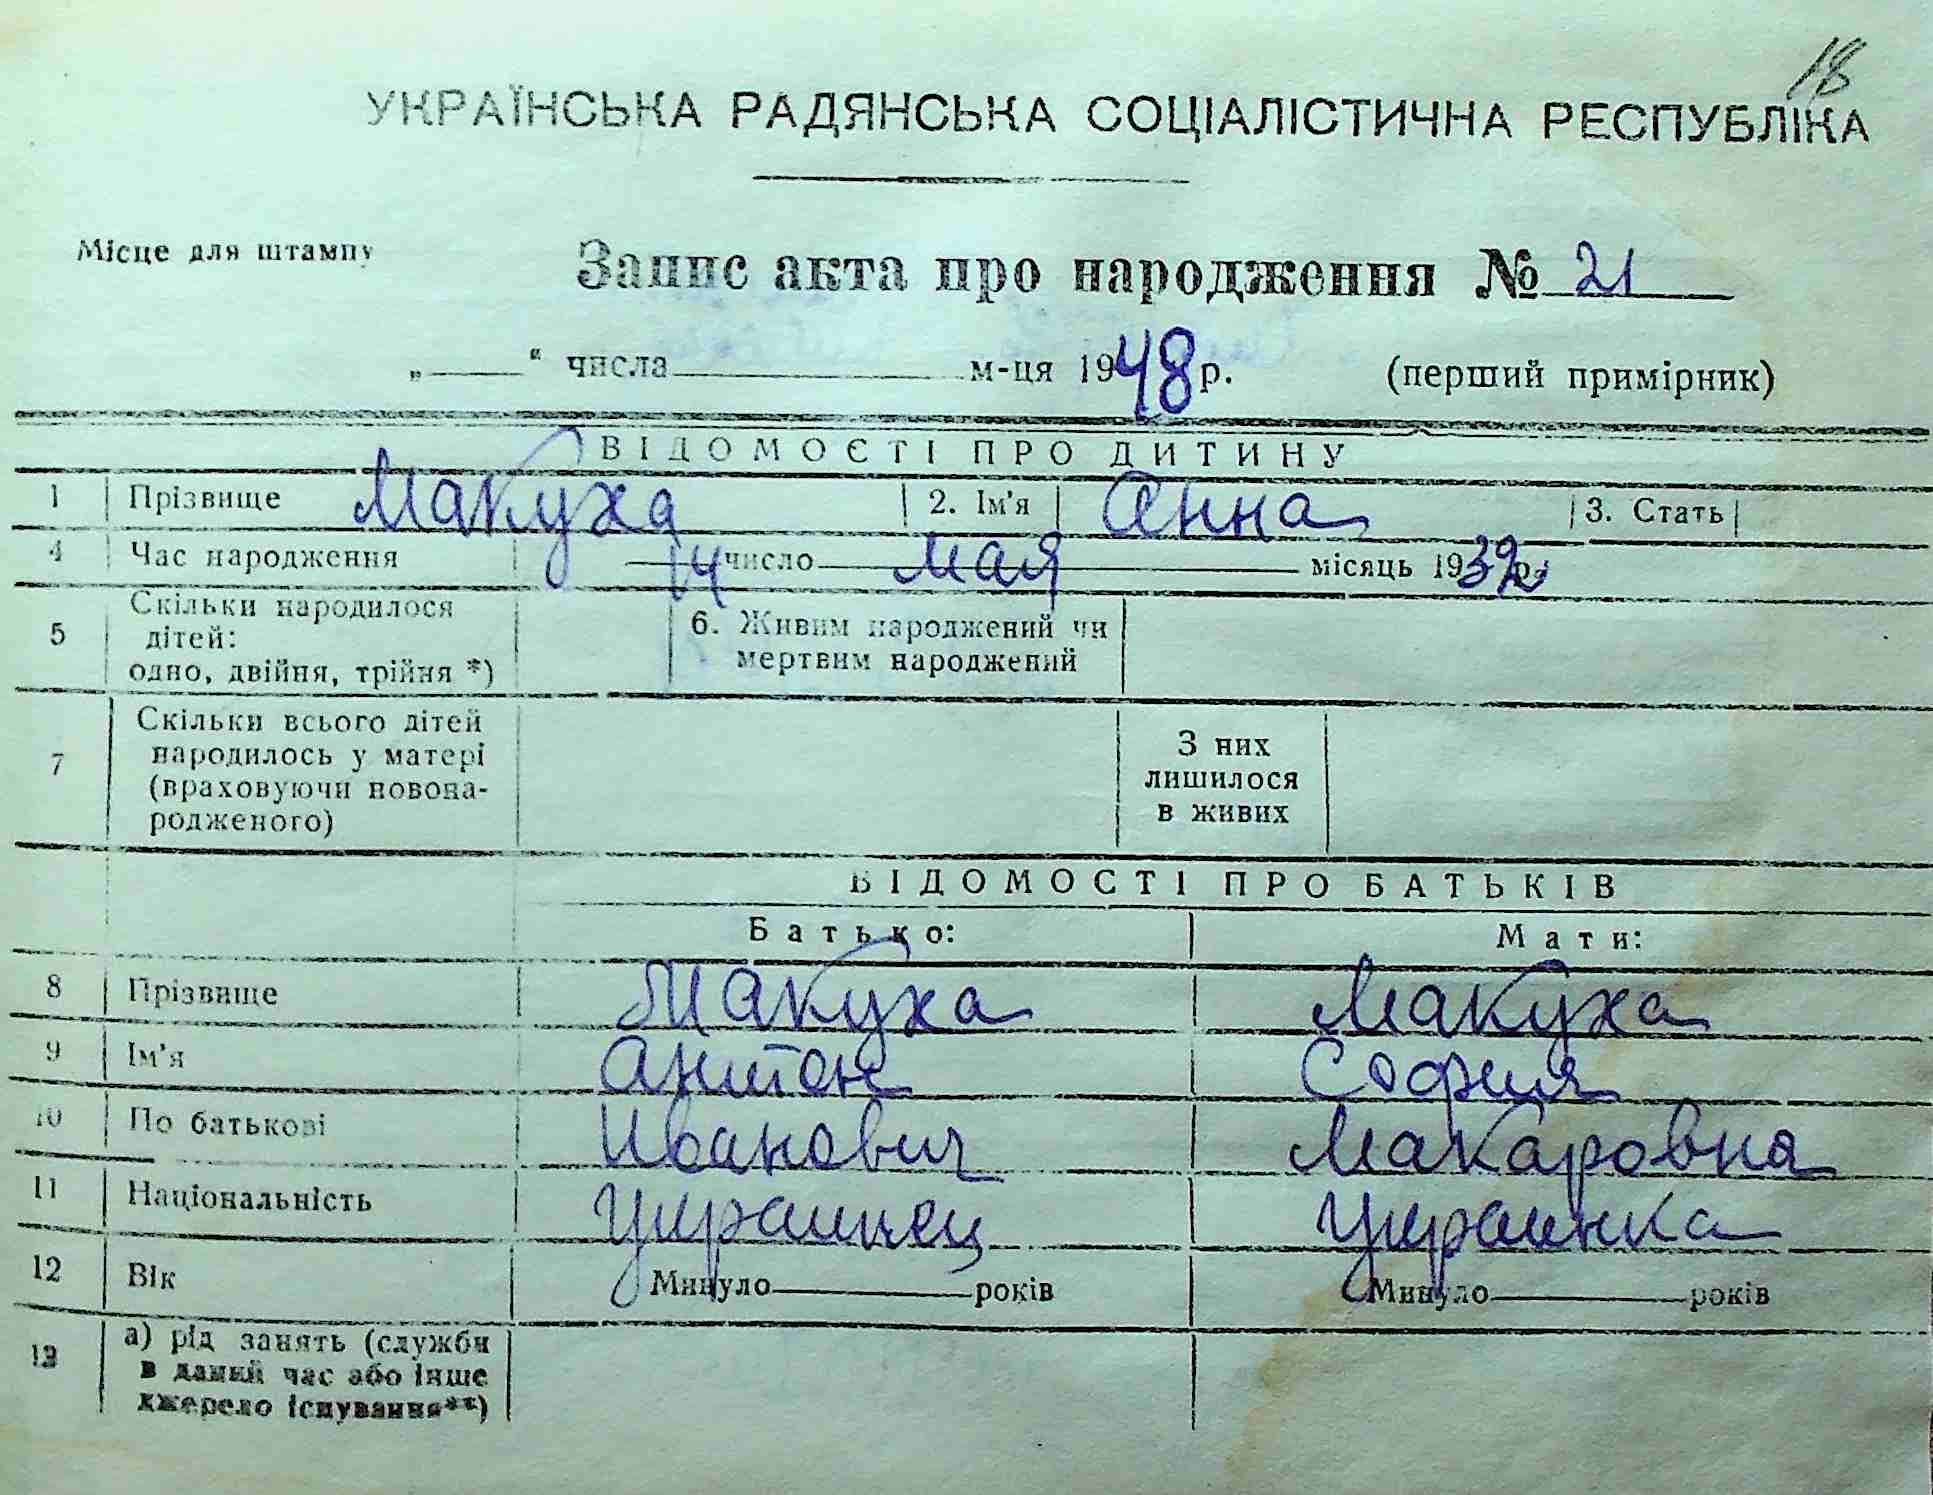 18
УКРАЇНСЬКА РАДЯНСЬКА СОЦІАЛІСТИЧНА РЕСПУБЛІКА
Місце для штампу
Запис акта про народження № 21
„ “ числа м-ця 1948 р. (перший примірник)
ВІДОМОСТІ ПРО ДИТИНУ
1 Прізвище Макуха 2. Ім'я Анна 3. Стать
4 Час народження 14 число мая місяць 1939 р.
5 Скільки народилося дітей: одно, двійня, трійня *) 6. Живим народжений чи мертвим народжений
7 Скільки всього дітей народилось у матері (враховуючи новонародженого) З них лишилося в живих
ВІДОМОСТІ ПРО БАТЬКІВ
Батько: Мати:
8 Прізвище Макуха Макуха
9 Ім'я Антон София
10 По батькові Иванович Макаровна
11 Національність Украинец Украинка
12 Вік Минуло років Минуло років
13 а) рід занять (служби в даний час або інше джерело існування**)